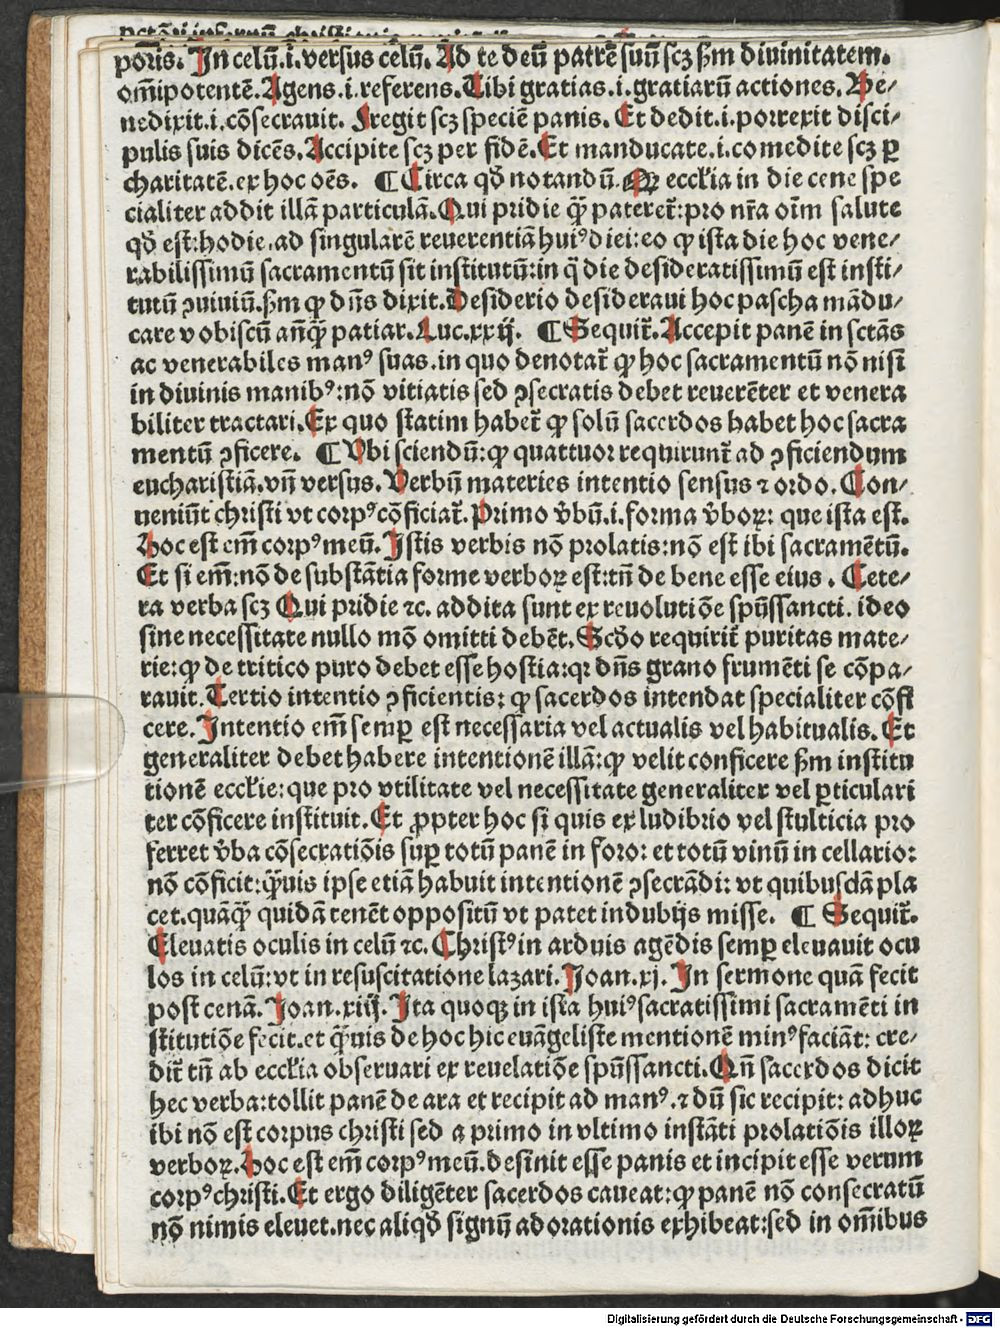 poris. In celū.i.versus celū. Ad te deū patrē suū scꝫ ẜm diuinitatem.
om̄ipotentē. Agens.i.referens. Tibi gratias.i.gratiarū actiones. Be⸗
nedixit.i.cōsecrauit. Fregit scꝫ speciē panis. Et dedit.i.porrexit disci⸗
pulis suis dicēs. Accipite scꝫ per fidē. Et manducate.i.comedite scꝫ ꝑ
charitatē.ex hoc oēs. ¶ Circa qđ notandū. Qꝫ eccłia in die cene spe
cialiter addit illā particulā. Qui pridie q̄ꝫ pateret̃: pro nr̄a oīm salute
qđ est: hodie. ad singularē reuerentiā huiꝰ diei: eo ꝙ ista die hoc vene⸗
rabilissimū sacramentū sit institutū: in q̄ die desideratissimū est insti⸗
tutū ꝯuiuiū. ẜm ꝙ dn̄s dixit. Desiderio desideraui hoc pascha mādu⸗
care vobiscū an̄q̄ꝫ patiar. Luc.xxij. ¶ Sequit̃. Accepit panē in sctās
ac venerabiles manꝰ suas. in quo denotat̃ ꝙ hoc sacramentū nō nisi
in diuinis manibꝰ: nō vitiatis sed ꝯsecratis debet reuerēter et venera
biliter tractari. Ex quo statim habet̃ ꝙ solū sacerdos habet hoc sacra
mentū ꝯficere. ¶ Vbi sciendū: ꝙ quattuor requirunt̃ ad ꝯficiendum
eucharistiā. vn̄ versus. Verbū materies intentio sensus ⁊ ordo. Con⸗
ueniūt christi vt corpꝰ cōficiat̃. Primo v̄bū.i.forma v̄boꝝ: que ista est.
Hoc est em̄ corpꝰ meū. Istis verbis nō prolatis: nō est ibi sacramētū.
Et si em̄: nō de substātia forme verboꝝ est: tn̄ de bene esse eius. Cete⸗
ra verba scꝫ Qui pridie ⁊c. addita sunt ex reuolutiōe spūssancti. ideo
sine necessitate nullo mō omitti debēt. Scđo requirit̃ puritas mate⸗
rie: ꝙ de tritico puro debet esse hostia: qꝛ dn̄s grano frumēti se cōpa⸗
rauit. Tertio intentio ꝯficientis: ꝙ sacerdos intendat specialiter cōfi
cere. Intentio em̄ semꝑ est necessaria vel actualis vel habitualis. Et
generaliter debet habere intentionē illā: ꝙ velit conficere ẜm institu
tionē eccłie: que pro vtilitate vel necessitate generaliter vel ꝑticulari
ter cōficere instituit. Et ꝓpter hoc si quis ex ludibrio vel stulticia pro
ferret v̄ba cōsecratiōis suꝑ totū panē in foro: et totū vinū in cellario:
nō cōficit: q̄ꝫuis ipse etiā habuit intentionē ꝯsecrādi: vt quibusdā pla
cet. quāq̄ꝫ quidā tenēt oppositū vt patet in dubijs misse. ¶ Sequit̃.
Eleuatis oculis in celū ⁊c. Christꝰ in arduis agēdis semꝑ eleuauit ocu
los in celū: vt in resuscitatione lazari. Joan.xj. In sermone quā fecit
post cenā. Joan.xiij. Ita quoqꝫ in ista huiꝰ sacratissimi sacramēti in
stitutiōe fecit. et q̄ꝫuis de hoc hic euāgeliste mentionē minꝰ faciāt: cre⸗
dit̃ tn̄ ab eccłia obseruari ex reuelatiōe spūssancti. Qn̄ sacerdos dicit
hec verba: tollit panē de ara et recipit ad manꝰ. ⁊ dū sic recipit: adhuc
ibi nō est corpus christi sed a primo in vltimo instāti prolatiōis illoꝝ
verboꝝ. Hoc est em̄ corpꝰ meū. desinit esse panis et incipit esse verum
corpꝰ christi. Et ergo diligēter sacerdos caueat: ꝙ panē nō consecratū
nō nimis eleuet. nec aliqđ signū adorationis exhibeat: sed in om̄ibus
Digitalisierung gefördert durch die Deutsche Forschungsgemeinschaft - DFG